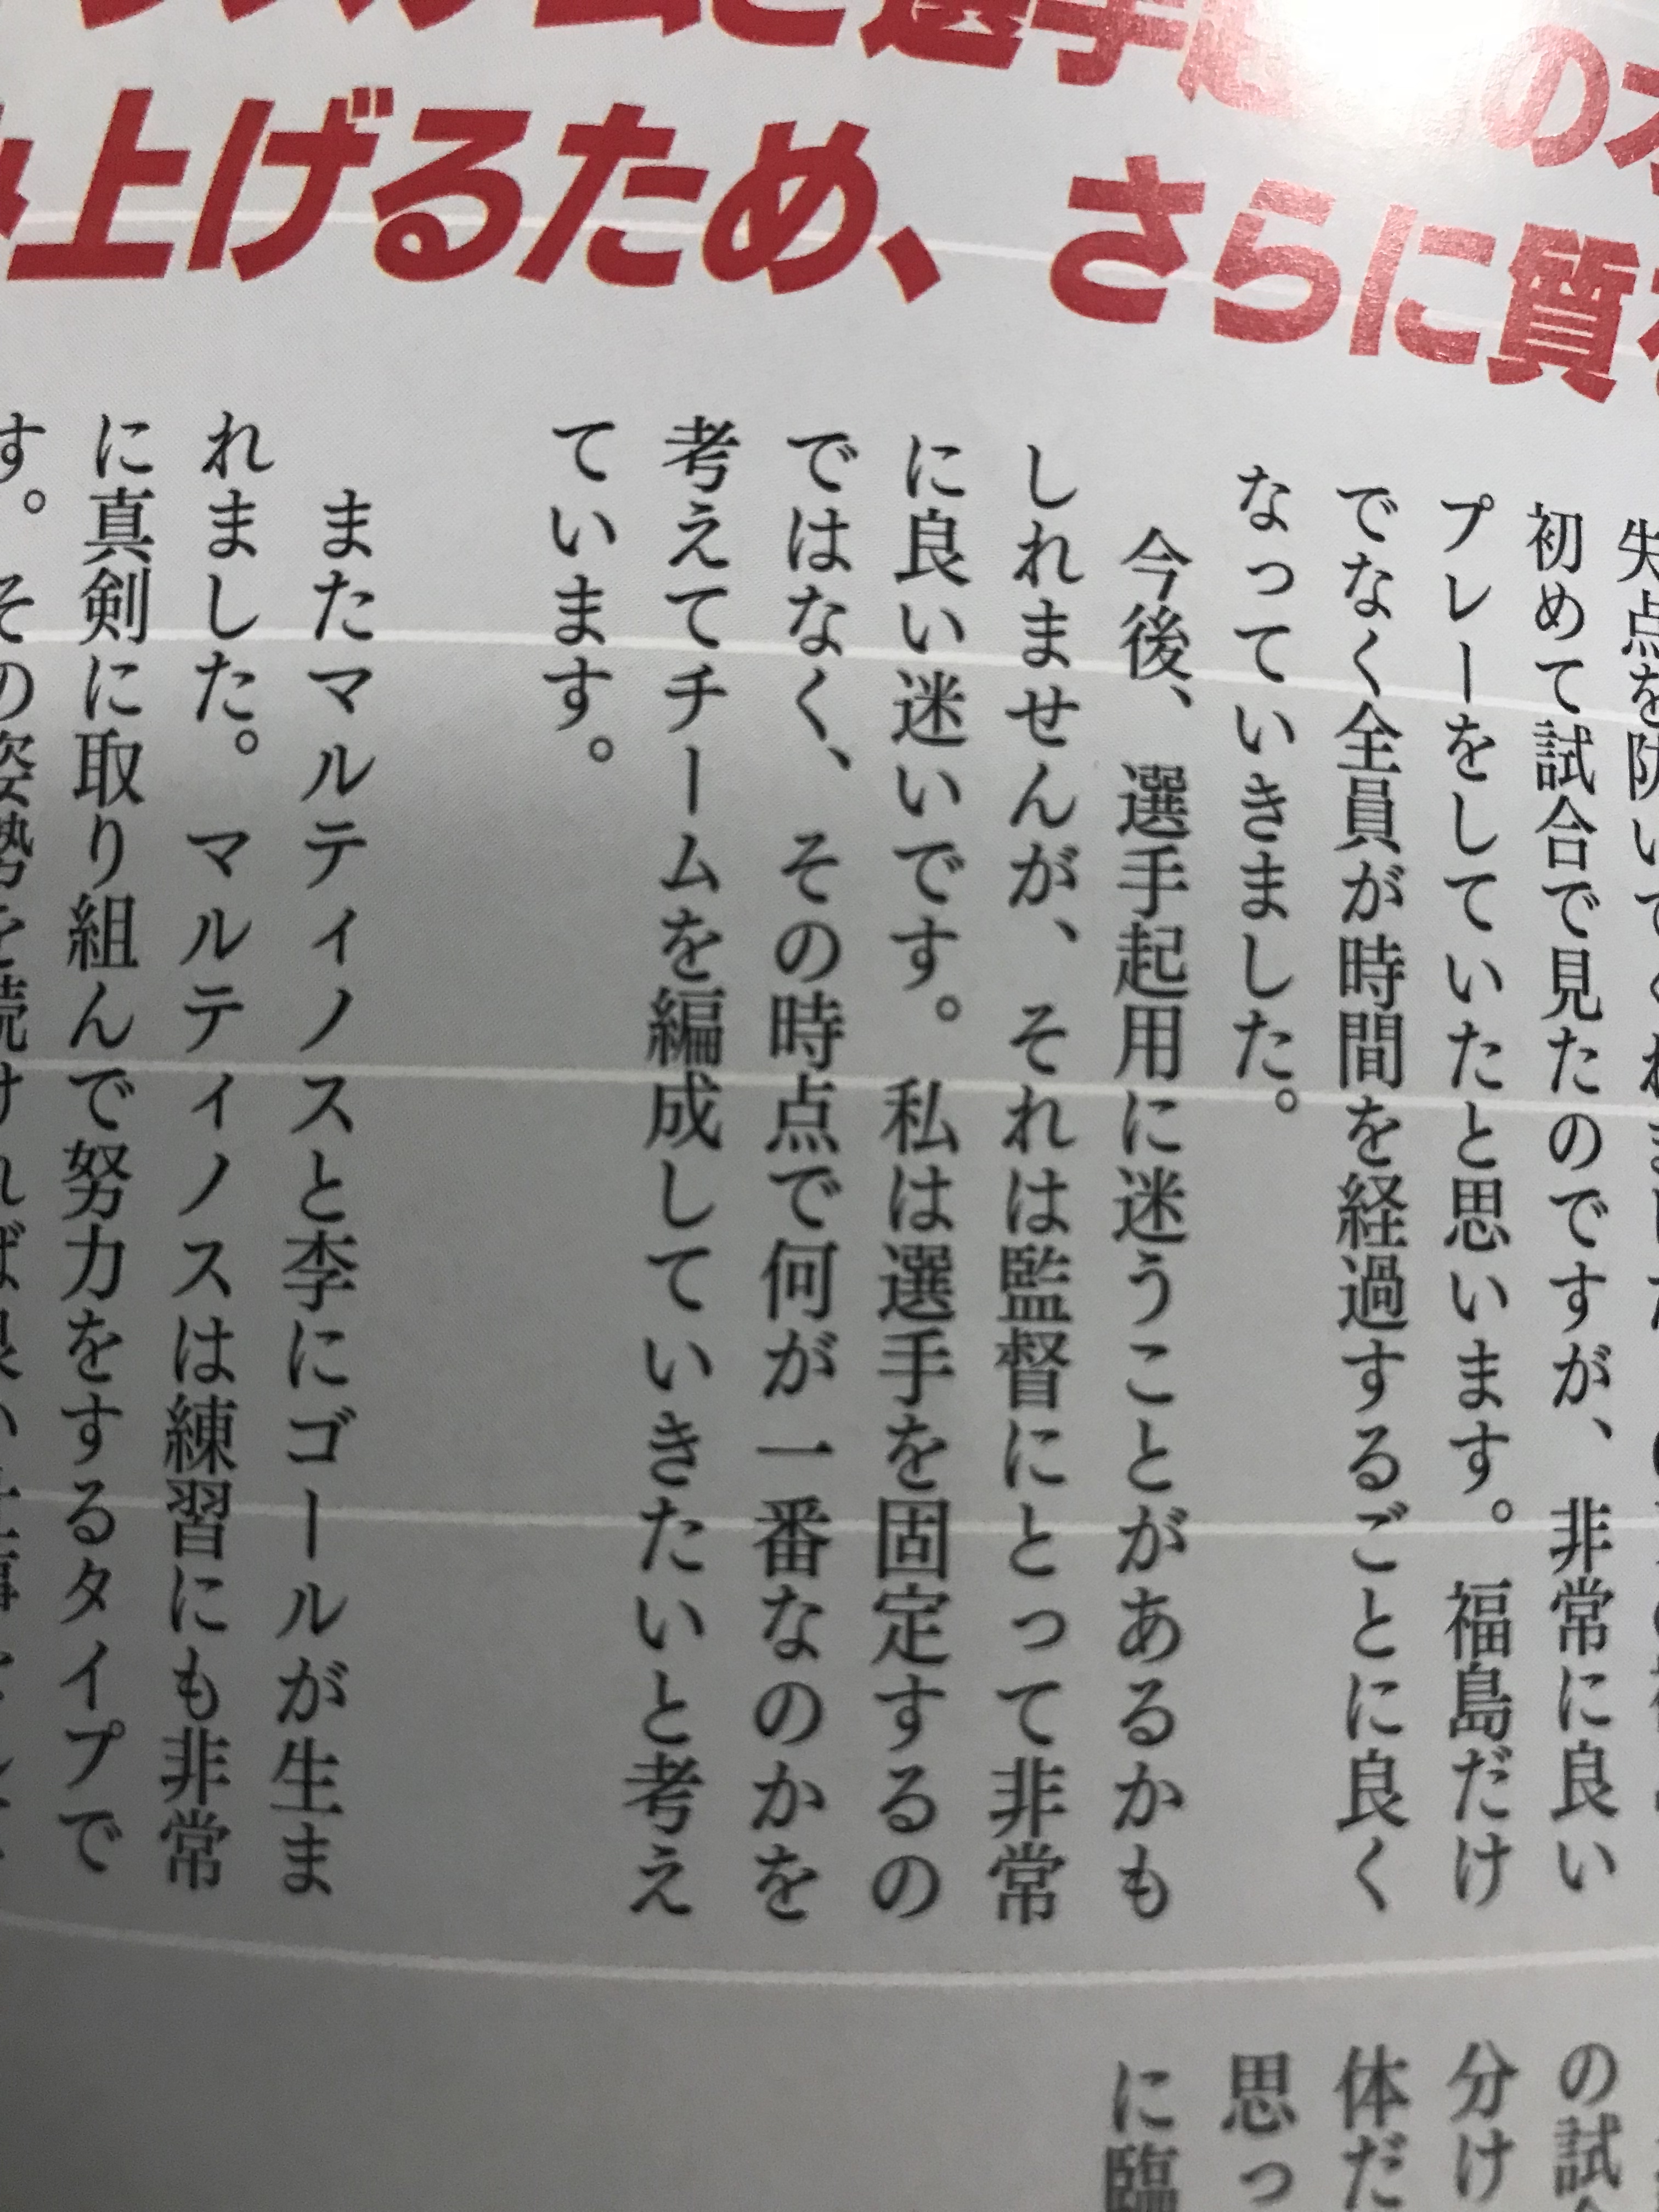 選手起
の
上げるため、さらに質
失点を防いでくれました
初めて試合で見たのですが、非常に良い
プレーをしていたと思います。福島だけ
でなく全員が時間を経過するごとに良く
なっていきました。
今後、選手起用に迷うことがあるかも
しれませんが、それは監督にとって非常
に良い迷いです。私は選手を固定するの
ではなく、その時点で何が一番なのかを
考えてチームを編成していきたいと考え
ています。
またマルティノスと李にゴールが生ま
れました。マルティノスは練習にも非常
に真剣に取り組んで努力をするタイプで
す。その姿勢を続ければ良い仕事を
の試
分け
体だ
思っ
に臨